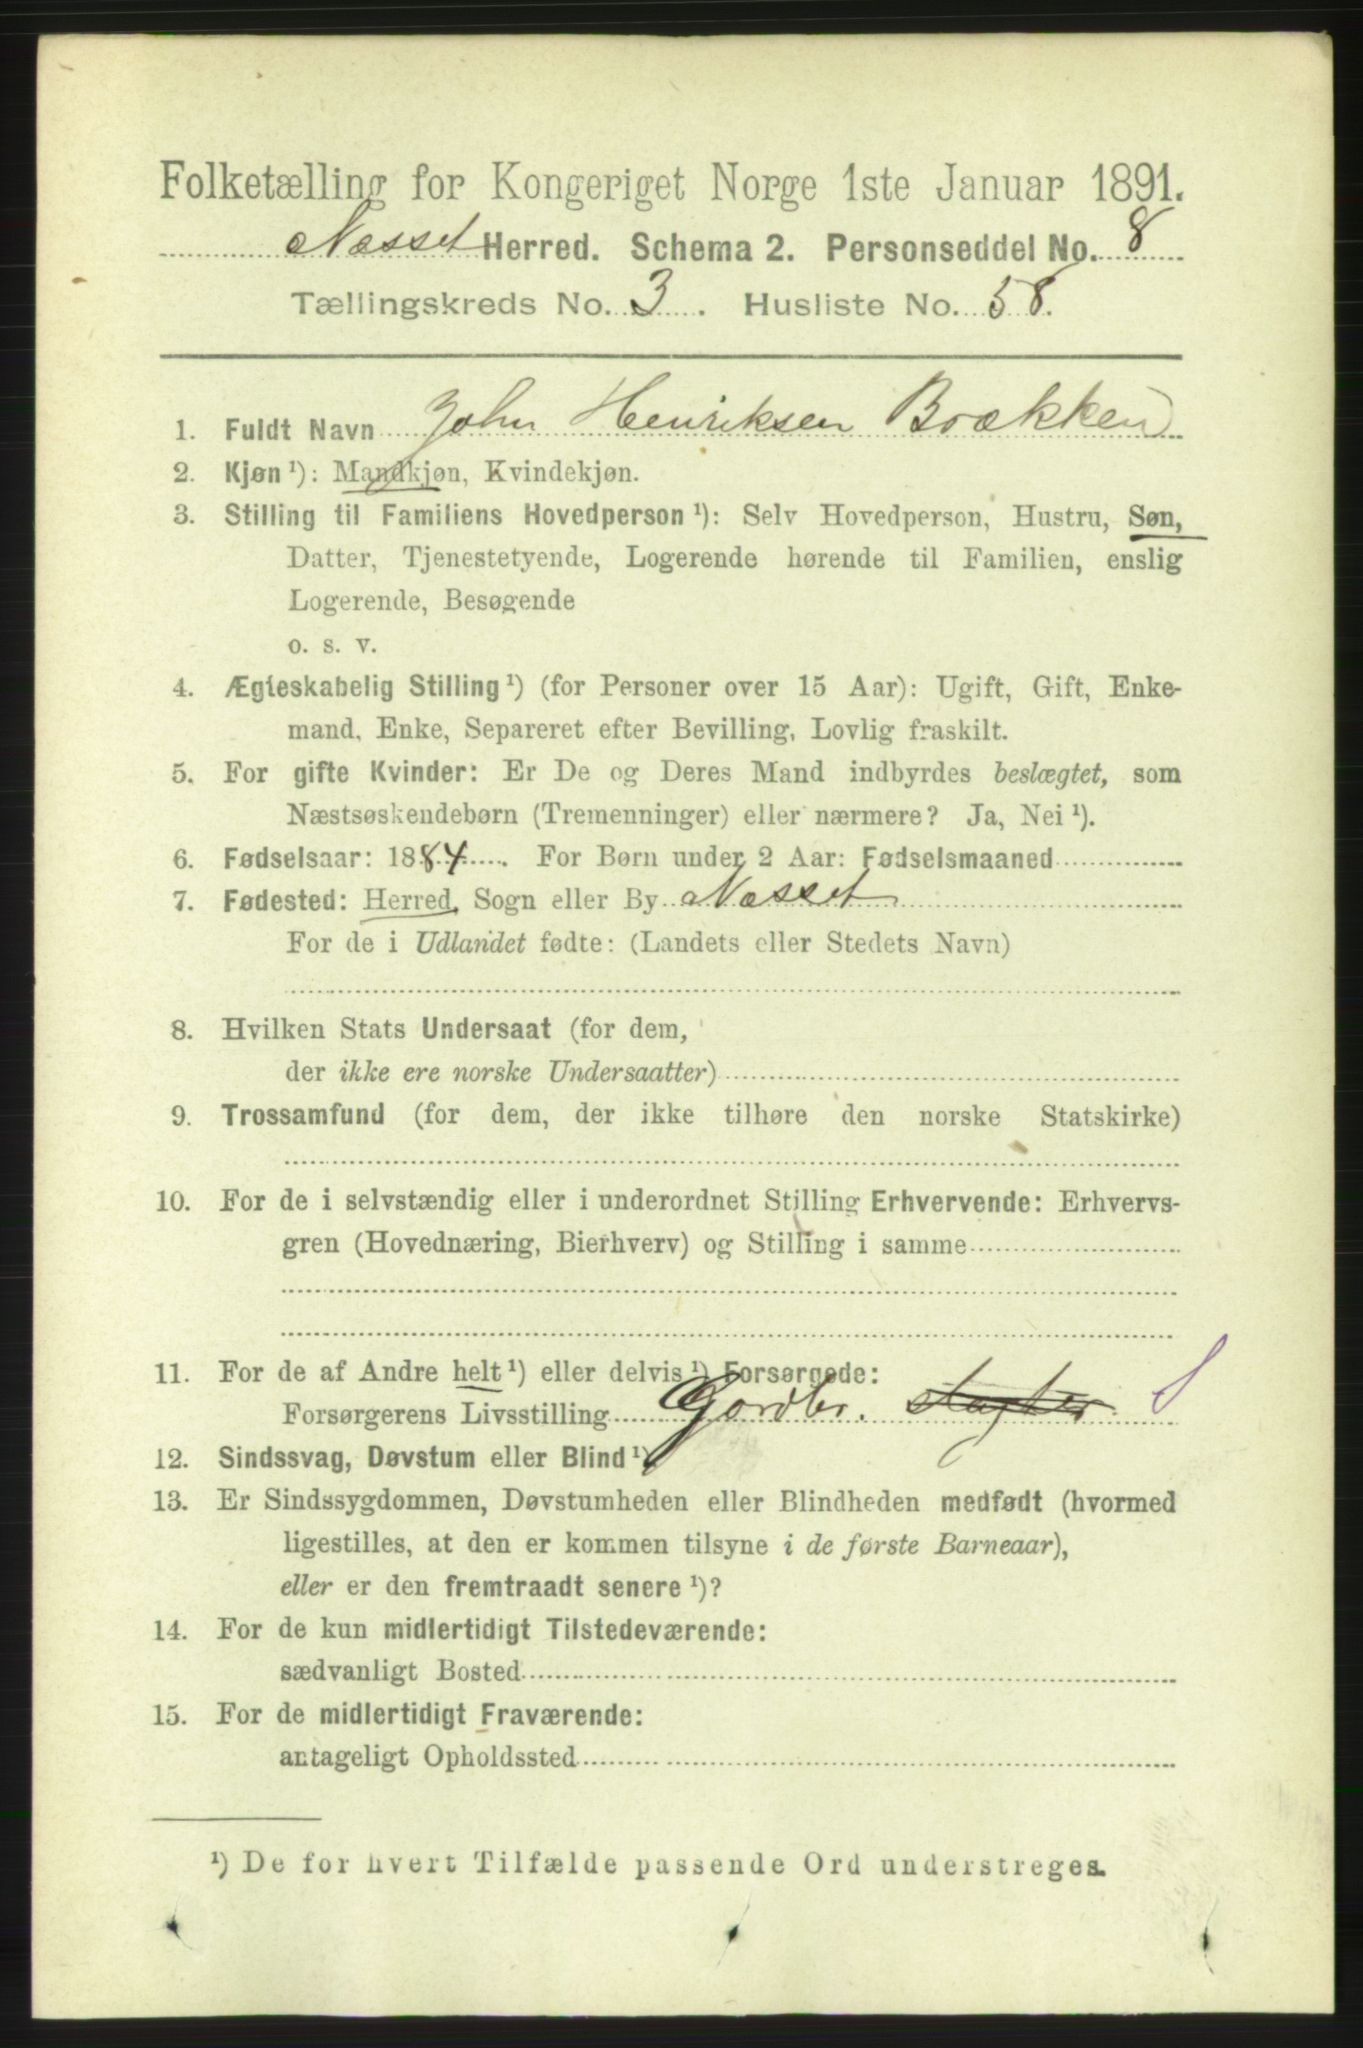 Folketælling for Kongeriget Norge 1ste Januar 1891.
Næsset Herred. Schema 2. Personseddel No. 8
Tællingskreds No. 3. Husliste No. 58.
1. Fuldt Navn John Henriksen Brækken
2. Kjøn ¹): Mandkjøn, Kvindekjøn.
3. Stilling til Familiens Hovedperson ¹): Selv Hovedperson, Hustru, Søn,
Datter, Tjenestetyende, Logerende hørende til Familien, enslig
Logerende, Besøgende
o. s. v.
4. Ægteskabelig Stilling ¹) (for Personer over 15 Aar): Ugift, Gift, Enke-
mand, Enke, Separeret efter Bevilling, Lovlig fraskilt.
5. For gifte Kvinder: Er De og Deres Mand indbyrdes beslægtet, som
Næstsøskendebørn (Tremenninger) eller nærmere? Ja, Nei ¹).
6. Fødselsaar: 1884. For Børn under 2 Aar: Fødselsmaaned
7. Fødested: Herred, Sogn eller By Næsset
For de i Udlandet fødte: (Landets eller Stedets Navn)
8. Hvilken Stats Undersaat (for dem,
der ikke ere norske Undersaatter)
9. Trossamfund (for dem, der ikke tilhøre den norske Statskirke)
10. For de i selvstændig eller i underordnet Stilling Erhvervende: Erhvervs-
gren (Hovednæring, Bierhverv) og Stilling i samme
11. For de af Andre helt ¹) eller delvis ¹) Forsørgede:
Forsørgerens Livsstilling Gardbr. S
12. Sindssvag, Døvstum eller Blind ¹)
13. Er Sindssygdommen, Døvstumheden eller Blindheden medfødt (hvormed
ligestilles, at den er kommen tilsyne i de første Barneaar),
eller er den fremtraadt senere ¹)?
14. For de kun midlertidigt Tilstedeværende:
sædvanligt Bosted
15. For de midlertidigt Fraværende:
antageligt Opholdssted
¹) De for hvert Tilfælde passende Ord understreges.